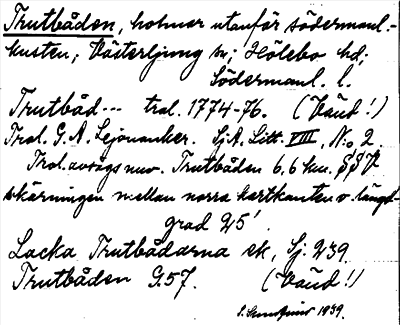 Trutbåden, holmar utanför södermanl.-
kusten, Västerljung sn; Hölebo hd;
Södermanl. l.
Trutbåd--- trol. 1774-76. (Vänd!)
Trol. G.A. Lejonanker. Sj.A. Litt. VIII, No 2.
Trol. avsågs nuv. Trutbåden 6,6 km. SSV
skärningen mellan norra kartkanten o. längd-
grad 25'.
Lacka Trutbådarna ek, Sj. 239.
Trutbåden G.57. (Vänd!)
1939.